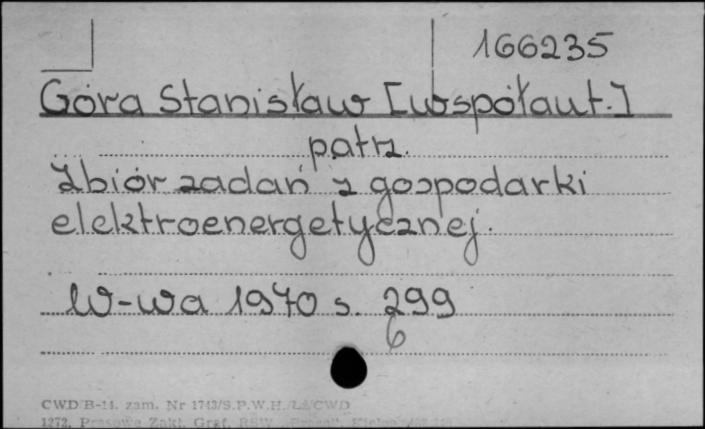 166235
Góra Stanisław [współaut.]
patrz
Zbiór zadań z gospodarki
elektroenergetycznej.
W-wa 1970 s. 299
6
CWD B-14. zam. Nr 1743/S.P.W.H./Ł/CWD
1272. Prasowe Zakł. Graf. RSW